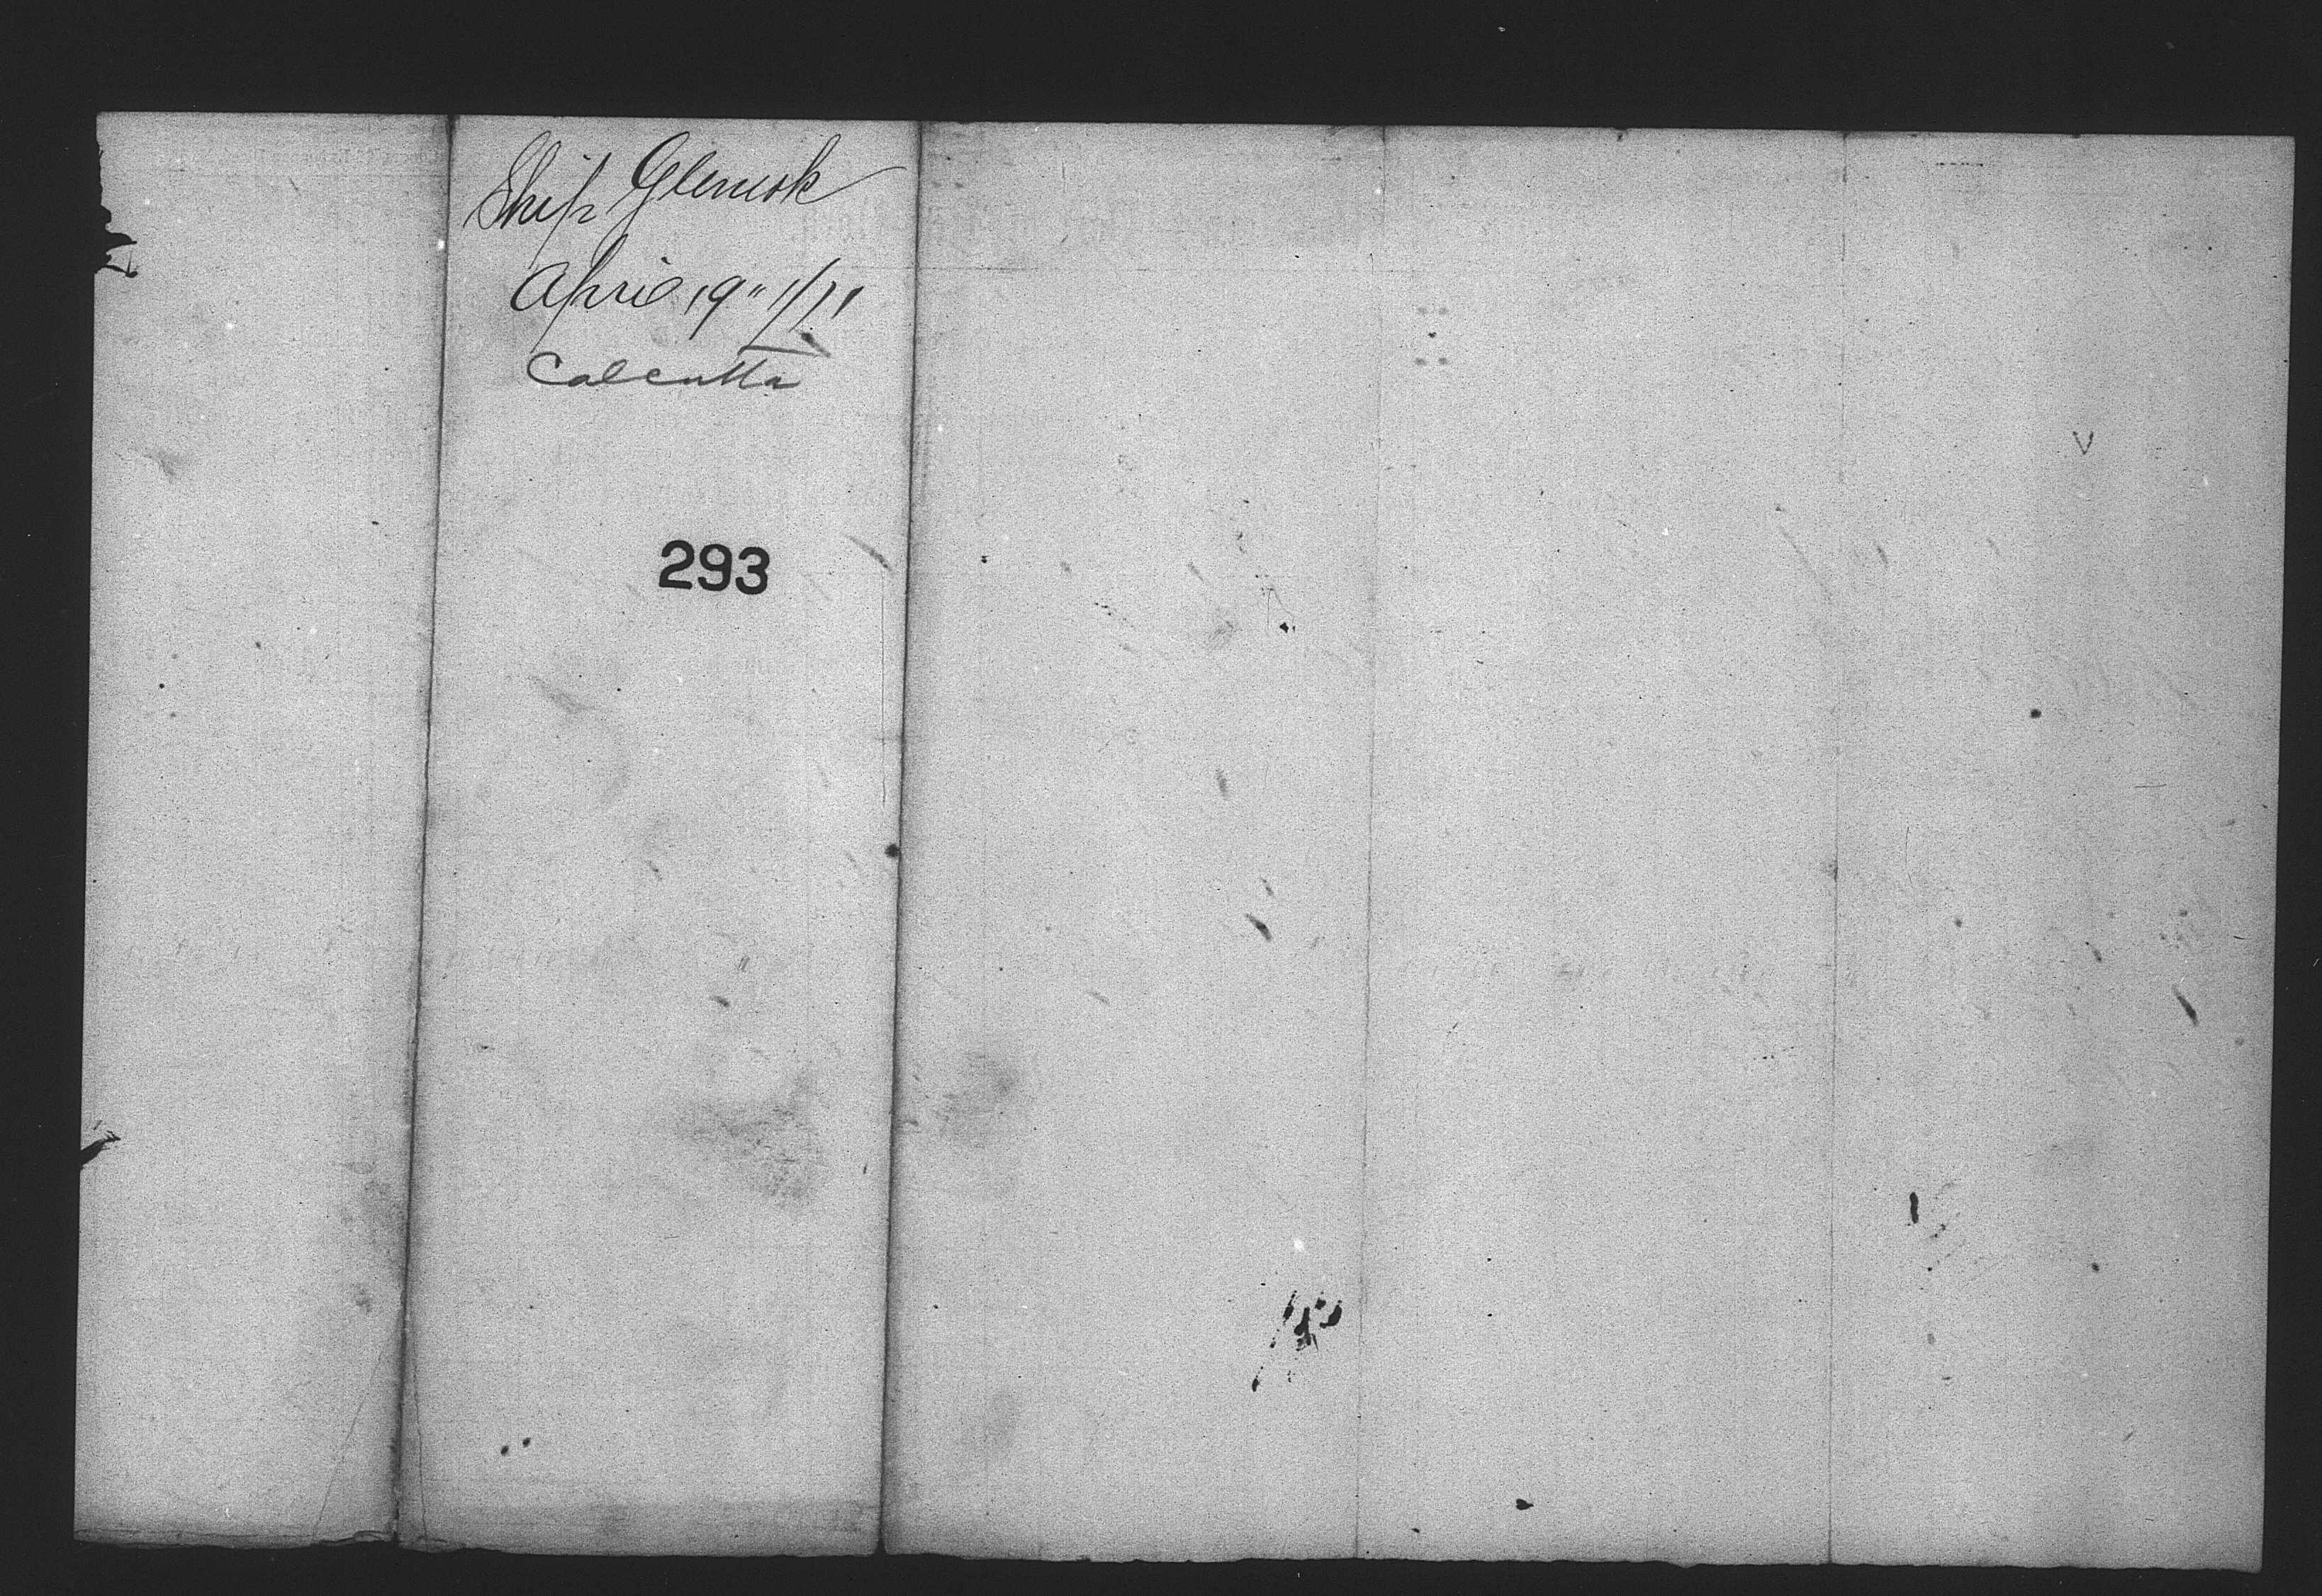 Ship Glenesk
April 19" 1/71
Calcutta
293